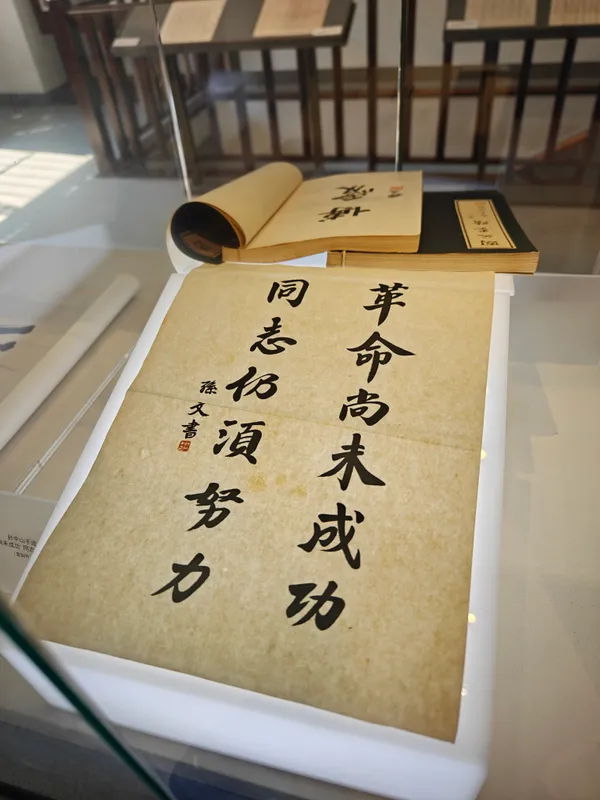 革命尚未成功
同志仍須努力
孫文書
博愛